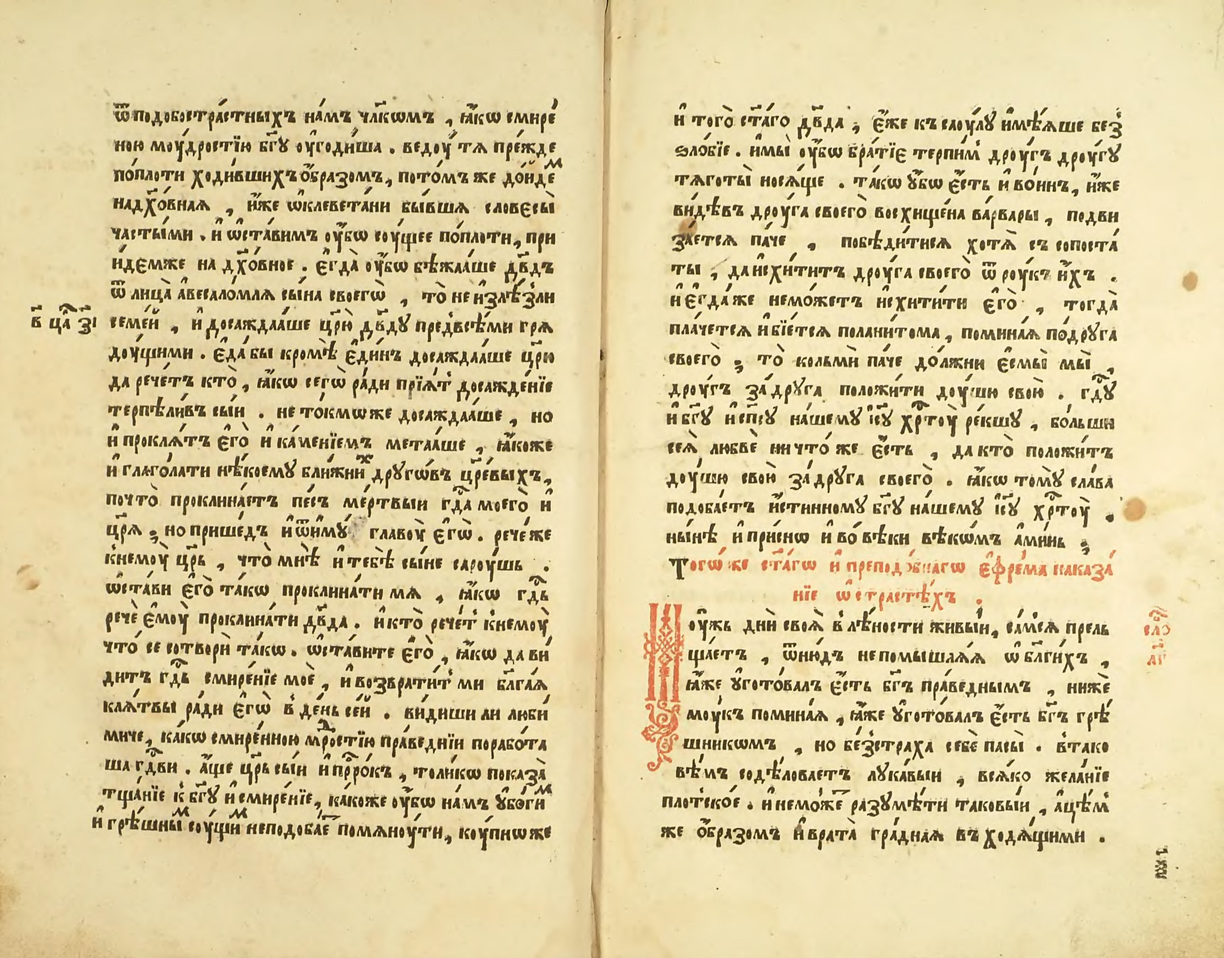 ѿ подобострастныхъ на́мъ чл҃кѡмъ , ꙗ҆́кѡ смире
ною моу́дростїю бг҃ꙋ оу҆годи́ша . ведоу́ тѧ пре́жде
поплоти ходи́вшихъ ѻ҆́бразомъ , пото́мъ же до́нде
на дх҃о́внаѧ , и҆́же ѡ҆клевета́ни бы́вшѧ словесы̀
ча́стыми . и҆ ѡ҆ста́вимъ оу҆́бѡ соу́щее поплоти , при
и́демже на дх҃о́вное . є҆гда̀ оу҆́бѡ бѣжа́аше дв҃дъ
ѿ лица̀ а҆весало́млѧ сы́на своегѡ̀ , то̀ не и҆злѣ́зли
в҃ ца҃ зі
семе́й , и҆ досажда́аше цр҃ю̀ дв҃дꙋ предвсѣ́ми грѧ
доу́щими . є҆да̀ бы кромѣ̀ є҆ди́нъ досажда́аше цр҃ю
да рече́тъ кто̀ , ꙗ҆́кѡ сегѡ̀ ра́ди прїѧ́тъ досажде́нїе
терпѣли́въ сы́и . не то́кмѡже досажда́аше , но
и҆ проклѧ́тъ є҆го̀ и҆ ка́менїемъ мета́аше , ꙗ҆́коже
и҆ глаго́лати нѣ́коемꙋ бли́жнихъ дрꙋгѡ́въ цр҃е́выхъ ,
почто̀ проклина́етъ пе́съ ме́ртвыи гд҃а моего̀ и҆
цр҃ѧ̀ ; но прише́дъ и҆ ѿимꙋ̀ главоу̀ є҆гѡ̀ . рече́ же
кнемоу̀ цр҃ь , что̀ мнѣ̀ и҆ тебѣ̀ сы́не сароу́шь .
ѡ҆ста́ви є҆го̀ та́кѡ проклина́ти мѧ , ꙗ҆́кѡ гд҃ь
речѐ є҆моу̀ проклина́ти дв҃да . и҆ кто̀ рече́тъ кнемоу̀
что̀ се сотвори̂ та́кѡ . ѡ҆ста́вите є҆го̀ , ꙗ҆́кѡ да ви́
дитъ гд҃ь смире́нїе моѐ , и҆ возврати́т ми бл҃га́ѧ
клѧ́твы ра́ди є҆гѡ̀ в де́нь се́й . ви́диши ли люби́
миче , ка́кѡ смире́нною мр҃остїю пра́веднїи порабо́та
ша гд҃ви . а҆́ще цр҃ь сы́и и҆ прⷪ҇ро́къ , толи́кѡ показа̀
тща́нїе к бг҃ꙋ и҆ смире́нїе , ка́коже оу҆́бѡ на́мъ ᲂубѻ́гим
и҆ грѣ́шным соу́щим неподоба́ет помѧноу́ти , коу́пнѡже
и҆ того̀ ст҃а́го дв҃да ; є҆́же къ саоу́лꙋ и҆мѣ́ѧше без
зло́бїе . и҆мы̀ оу҆́бѡ бра́тїе терпи́м дроу́гъ дроу́гꙋ
тѧготы̀ носѧ́ще . та́кѡ ᲂу́бѡ є҆́сть и҆ во́инъ , и҆́же
ви́дѣвъ дроу́га своего̀ восхище́на ва́рвары , подви
за́етсѧ па́че , побѣди́тисѧ хотѧ̀ съ сопоста́
ты , да и҆схи́титъ дроу́га своего̀ ѿ роу́къ и҆́хъ .
и҆ є҆гда́ же немо́жетъ и҆схи́тити є҆го̀ , тогда̀
пла́четсѧ и҆ бїе́тсѧ поланито́ма , помина́ѧ подрꙋга
своего̀ ; то̀ кольмѝ па́че до́лжни є҆смы̀ мы̀ ,
дроу́гъ за дрꙋга положи́ти доу́шю свою̀ . гд҃ꙋ
и҆ бг҃ꙋ и҆ сп҃сꙋ на́шемꙋ і҆с҃ꙋ хр҃тоу̀ ре́кшꙋ , бо́льши
сеѧ̀ любвѐ ничто́ же є҆́сть , да кто̀ положи́тъ
доу́шю свою̀ за дрꙋга своего̀ . ꙗ҆́кѡ томꙋ̀ сла́ва
подоба́етъ и҆́стинномꙋ бг҃ꙋ на́шемꙋ і҆с҃ꙋ хр҃тоу̀ .
ны́нѣ и҆ при́снѡ и҆ во вѣ́ки вѣкѡ́мъ а҆ми́нь ;
Тогѡ́же ст҃а́гѡ и҆ преподо́бнагѡ є҆фре́ма наказа́
нїе ѡ҆ страсте́хъ .
сло҃ д҃і
Поу́жь дни̑ своѧ̂ в лѣ́ности живы́и , са́м сѧ прель
ща́етъ , ѿню́дъ непомышлѧ́ѧ ѡ҆ бл҃ги́хъ ,
ꙗ҆̀же ᲂуготова́лъ є҆́сть бг҃ъ пра́веднымъ , ниже́
моу́къ помина́ѧ , ꙗ҆̀же ᲂуготова́лъ є҆́сть бг҃ъ грѣ́
шникѡмъ , но без̾стра́ха себѐ пасы̀ . в тако
вѣ́мъ содѣ́ловаетъ лꙋка́выи , всѧ́ко жела́нїе
плотско́е . и҆ немо́же разꙋмѣ́ти таковы́и , а҆цѣ́м
же ѻ҆́бразомъ и҆ врата̀ гра́днаѧ въходѧ́щими .